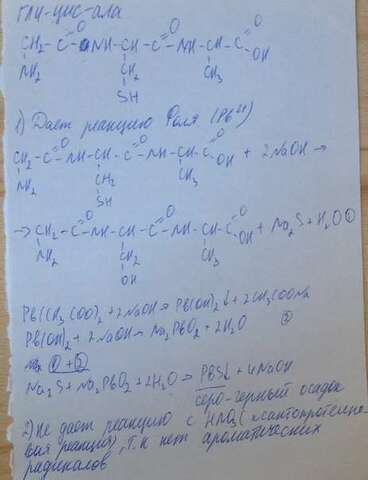 гли-цис-ала
O O O
CH₂ - C - NH - CH - C - NH - CH - C
NH₂ CH₂ CH₃ OH
SH
1) Дает реакцию Фоля (Pb²⁺)
O O O
CH₂ - C - NH - CH - C - NH - CH - C + 2NaOH →
NH₂ CH₂ CH₃ OH
SH
O O O
→ CH₂ - C - NH - CH - C - NH - CH - C + Na₂S + H₂O ①
NH₂ CH₂ CH₃ OH
OH
Pb(CH₃COO)₂ + 2NaOH → Pb(OH)₂↓ + 2CH₃COONa
Pb(OH)₂ + 2NaOH → Na₂PbO₂ + 2H₂O ②
① + ②
Na₂S + Na₂PbO₂ + 2H₂O → PbS↓ + 4NaOH
серо-черный осадок
2) не дает реакцию с HNO₃ (ксантопротеино-
вая реакция), т.к нет ароматических
радикалов